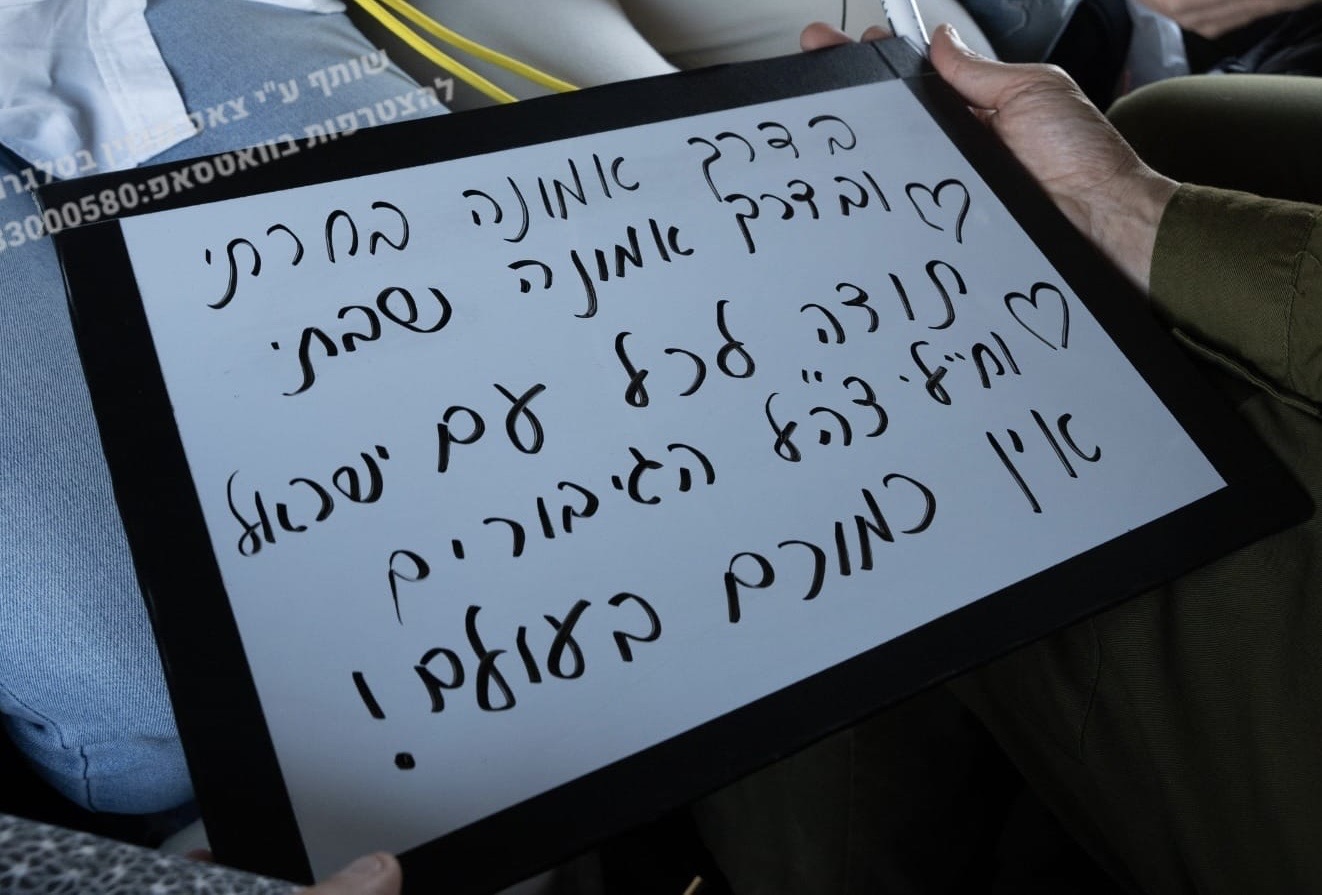 שותף ע"י צאפ בטלגר
להצטרפות בוואטסאפ:33000580
בדרך אמונה בחרתי
♡ ובדרך אמונה נשבתי
תודה לכל עם ישראל
♡ וחיילי צה"ל הגיבורים
אין כמוכם בעולם!